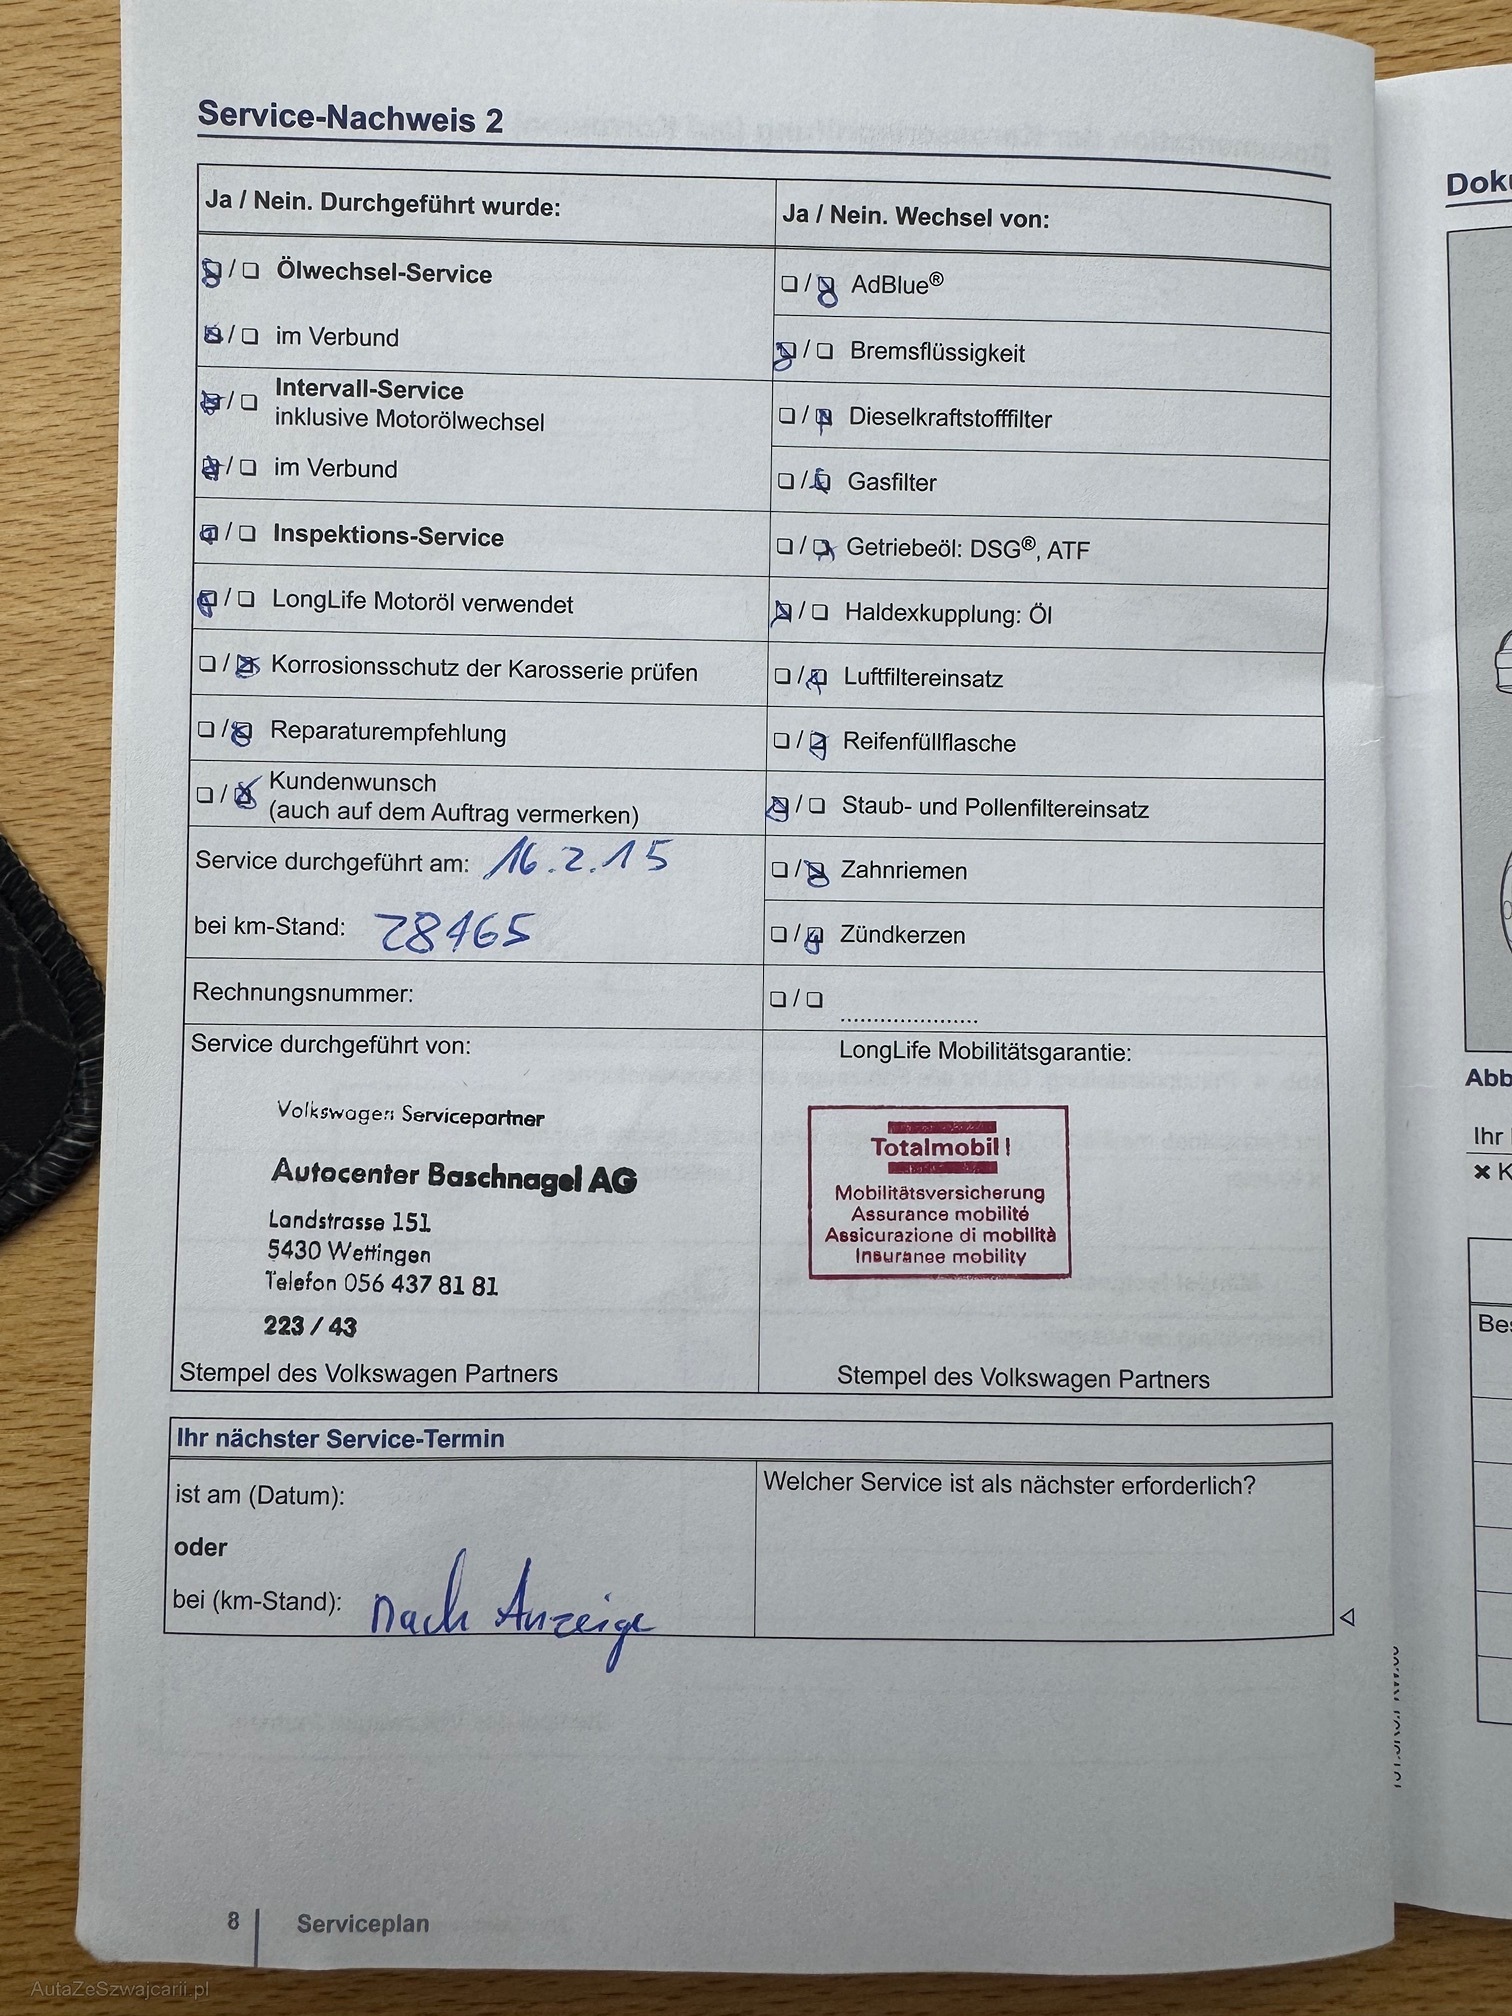 Service-Nachweis 2
Ja / Nein. Durchgeführt wurde:
☒ / ☐ Ölwechsel-Service
☒ / ☐ im Verbund
☒ / ☐ Intervall-Service
inklusive Motorölwechsel
☒ / ☐ im Verbund
☒ / ☐ Inspektions-Service
☒ / ☐ LongLife Motoröl verwendet
☐ / ☒ Korrosionsschutz der Karosserie prüfen
☐ / ☒ Reparaturempfehlung
☐ / ☒ Kundenwunsch
(auch auf dem Auftrag vermerken)
Service durchgeführt am: 16.2.15
bei km-Stand: 28165
Rechnungsnummer:
Ja / Nein. Wechsel von:
☐ / ☒ AdBlue®
☒ / ☐ Bremsflüssigkeit
☐ / ☒ Dieselkraftstofffilter
☐ / ☒ Gasfilter
☐ / ☒ Getriebeöl: DSG®, ATF
☒ / ☐ Haldexkupplung: Öl
☐ / ☒ Luftfiltereinsatz
☐ / ☒ Reifenfüllflasche
☒ / ☐ Staub- und Pollenfiltereinsatz
☐ / ☒ Zahnriemen
☐ / ☒ Zündkerzen
☐ / ☐ .....................
Service durchgeführt von:
Volkswagen Servicepartner
Autocenter Baschnagel AG
Landstrasse 151
5430 Wettingen
Telefon 056 437 81 81
223 / 43
Stempel des Volkswagen Partners
LongLife Mobilitätsgarantie:
Totalmobil !
Mobilitätsversicherung
Assurance mobilité
Assicurazione di mobilità
Insurance mobility
Stempel des Volkswagen Partners
Ihr nächster Service-Termin
ist am (Datum):
oder
bei (km-Stand): nach Anzeige
Welcher Service ist als nächster erforderlich?
8 Serviceplan
Doku
Abb
Ihr
✖ K
Bes
AutaZeSzwajcarii.pl